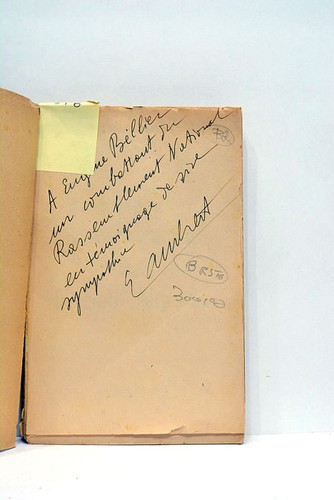 A Eugène Béllier
un combattant du
Rassemblement National
en témoignage de vive
sympathie
B RST6